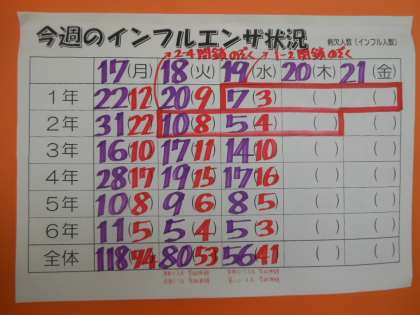 今週のインフルエンザ状況
病欠人数（インフル人数）
2-4 閉鎖のぞく
1-2 閉鎖のぞく
17(月) 18(火) 19(水) 20(木) 21(金)
1年 22(12) 20(9) 7(3) ( ) ( )
2年 31(22) 10(8) 5(4) ( ) ( )
3年 16(10) 17(11) 14(10) ( ) ( )
4年 28(17) 19(15) 17(16) ( ) ( )
5年 10(8) 9(6) 8(5) ( ) ( )
6年 11(5) 5(4) 5(3) ( ) ( )
全体 118(74) 80(53) 56(41) ( ) ( )